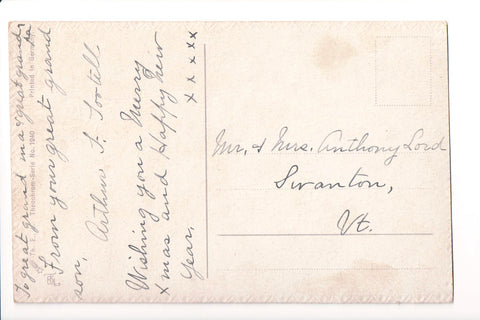 To great grand ma & great grand pa
From your great grand
son,
Arthur F.
Wishing you a Merry
Xmas and Happy New
Year,
x x x x x x
Mr. & Mrs. Anthony Lord
Swanton,
Vt.
Theochrom-Serie No. 1040
Printed in